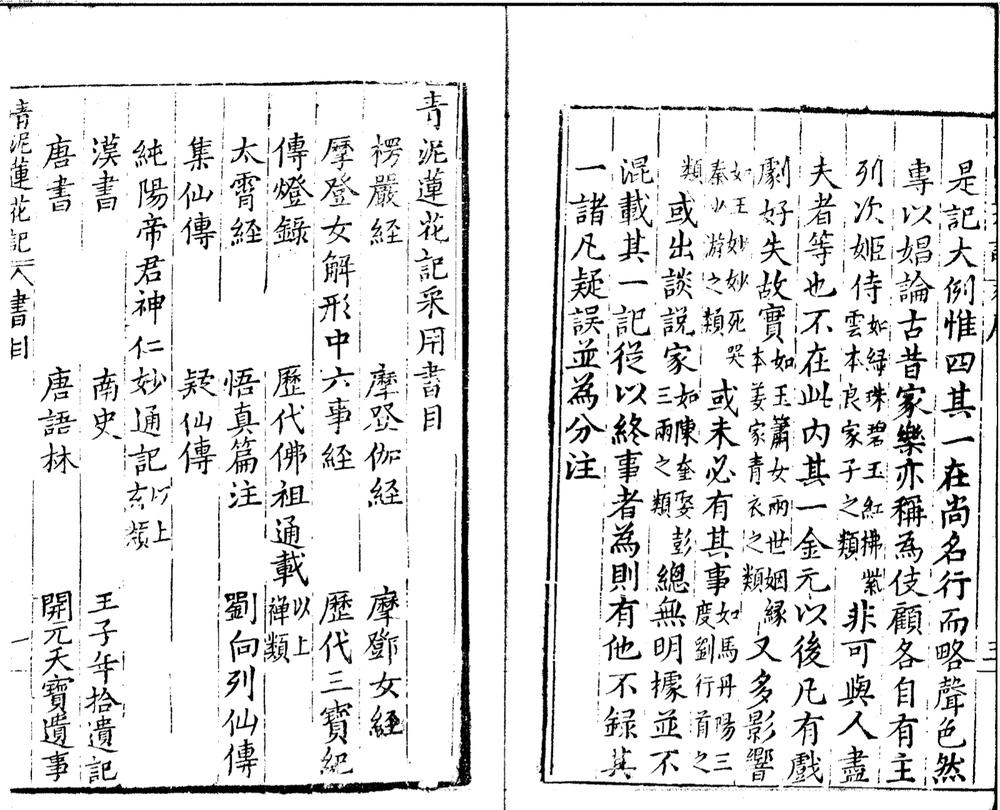 是記大例惟四其一在尚名行而略聲色然
專以娼論古昔家樂亦稱為伎顧各自有主
列次姬侍如綠珠碧玉紅拂紫雲本良家子之類非可與人盡
夫者等也不在此內其一金元以後凡有戲
劇好失故實如玉簫女兩世姻緣本姜家青衣之類又多影響
如王妙妙死哭秦少游之類或未必有其事如馬丹陽三度劉行首之
類或出談說家如陳奎娶彭三兩之類總無明據並不
混載其一記從以終事者為則有他不録其
一諸凡疑誤並為分注
青泥蓮花記采用書目
楞嚴経 摩登伽経 摩鄧女経
摩登女解形中六事経 歷代三寶紀
傳燈錄 歷代佛祖通載以上禅類
太霄経 悟真篇注 劉向列仙傳
集仙傳 疑仙傳
純陽帝君神仁妙通記以上玄類
漢書 南史 王子年拾遺記
唐書 唐語林 開元天寶遺事
青泥蓮花記 書目 一